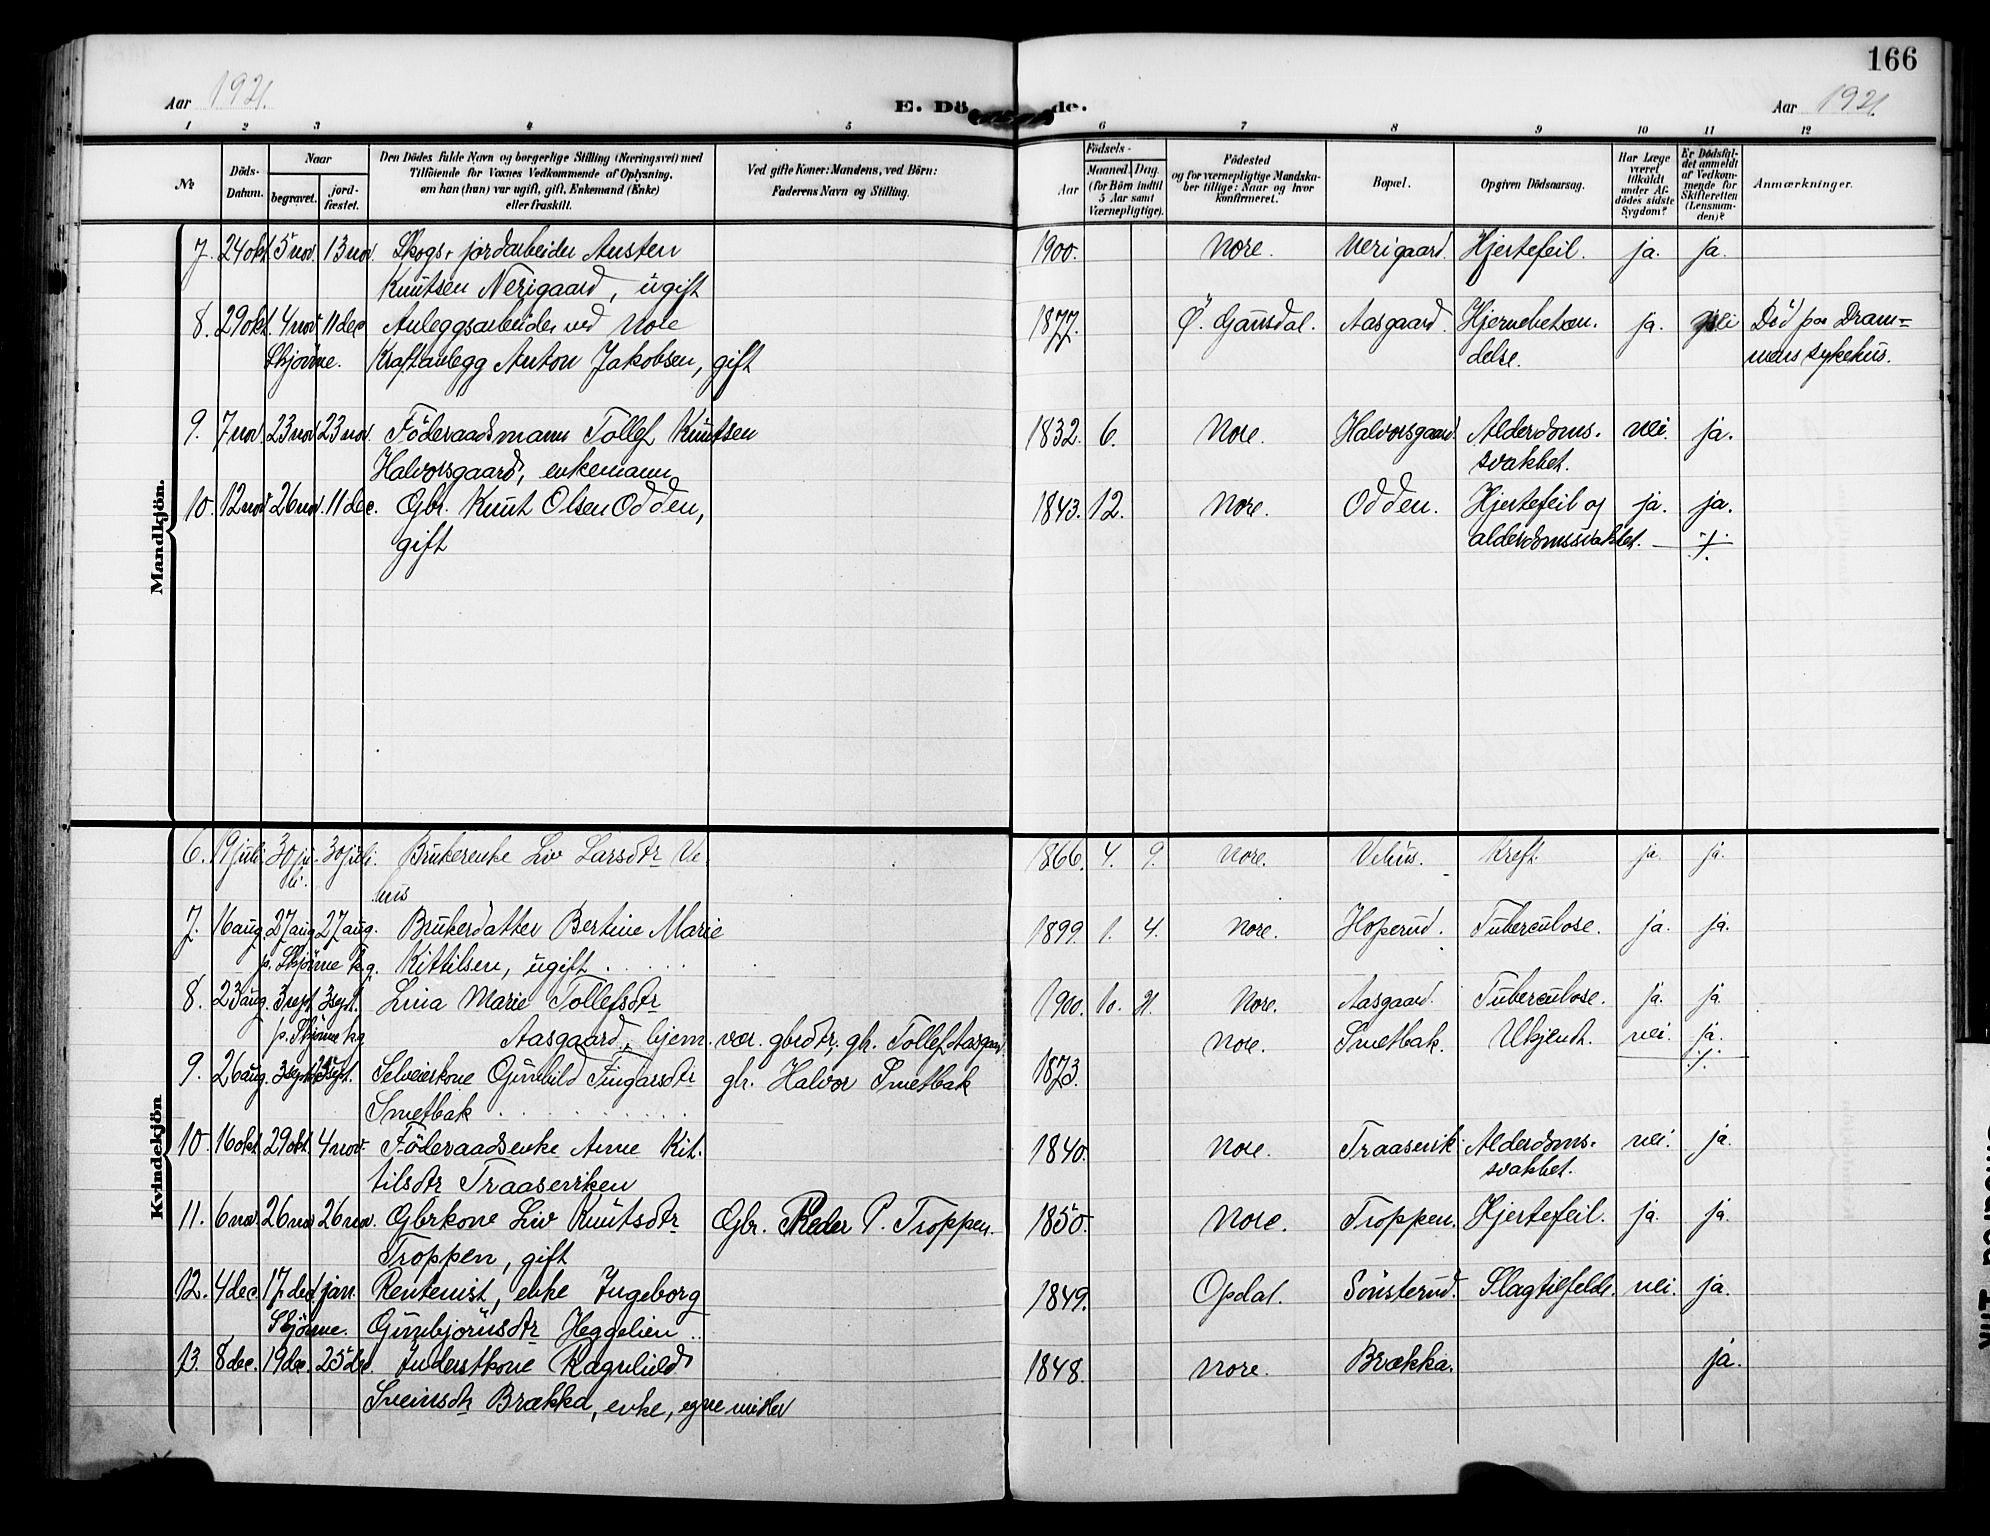 166
Aar 1921.
E. Dö de.
Aar 1921
1 2 3 4 5 6 7 8 9 10 11 12
No
Döds-Datum.
Naar
begravet.
jord-fæstet.
Den Dödes fulde Navn og borgerlige Stilling (Næringsvei) med
Tilföiende for Voxnes Vedkommende af Oplysning,
om han (hun) var ugift, gift, Enkemand (Enke)
eller fraskilt.
Ved gifte Koner: Mandens, ved Börn:
Faderens Navn og Stilling.
Födsels-
Aar
Maaned. Dag.
(for Börn indtil
5 Aar samt
Værnepligtige).
Födested
og for værnepligtige Mandska-
ber tillige: Naar og hvor
konfirmeret.
Bopæl.
Opgiven Dödsaarsag.
Har Læge
været
tilkaldt
under Af-
dödes sidste
Sygdom?
Er Dödsfal-
det anmeldt
af Vedkom-
mende for
Skifteretten
(Lensman-
den)?
Anmærkninger.
Mandkjön.
7. 24 okt. 5 nov. 13 nov. Skogs- jordarbeider Austen 1900. Nore. Nerigaard. Hjertefeil. ja. ja.
Knutsen Nerigaard, ugift
8. 29 okt. 4 nov. 11 dec. Anleggsarbeider ved Nore 1877. Ö. Gausdal. Aasgaard. Hjernebetæn- ja. nei Död paa Dram-
Skjönne. Kraftanlegg Anton Jakobsen, gift delse. mens sykehus.
9. 7 nov. 23 nov. 23 nov. Föderaadsmann Tollef Knutsen 1832. 6. Nore. Halvorsgaard. Alderdoms- nei. ja.
Halvorsgaard, enkemann svakhet.
10. 12 nov. 26 nov. 11 dec. Gbr. Knut Olsen Odden, 1843. 12. Nore. Odden. Hjertefeil og ja. ja.
gift alderdomssvakhet. ./.
Kvindekjön
6. 19 juli. 30 ju- 30 juli. Brukerenke Liv Larsdtr Ve- 1866. 4. 9. Nore. Vehus. Kreft. ja. ja.
li. hus
7. 16 aug. 27 aug. 27 aug. Brukerdatter Bertine Marie 1899. 1. 4. Nore. Hoperud. Tuberculose. ja. ja.
p. Skjönne kg. Kittilsen, ugift
8. 23 aug. 3 sept. 3 sept. Lina Marie Tollefsdtr 1900. 10. 21. Nore. Aasgaard. Tuberculose. ja. ja.
p. Skjönne kg Aasgaard, hjem. vær. gbrdtr, gb. Tollef Aasgaard Nore. Smetbak. Ukjendt. nei. ja.
9. 26 aug. 3 sept. sept. Selveierkone Gunhild Fingarsdtr gb. Halvor Smetbak 1873. ./.
Smetbak
10. 16 okt. 29 okt. 4 nov. Föderaadsenke Anne Kit- 1840. Nore. Traaserik. Alderdoms- nei. ja.
tilsdtr Traaseriken svakhet.
11. 6 nov. 26 nov 26 nov. Gbrkone Liv Knutsdtr Gbr. Peder P. Troppen. 1850. Nore. Troppen. Hjertefeil. ja. ja.
Troppen, gift
12. 4 dec. 17 dec. 1 jan. Rentenist, enke Ingeborg 1849. Opdal. Sönsterud. Slagtilfelde. nei. ja.
Skjönne. Gunbjörnsdtr Heggelien
13. 8 dec. 19 dec. 25 dec. Inderstkone Ragnhild 1848. Nore. Brækka. ja.
Sveinsdtr Brækka, enke, egne midler